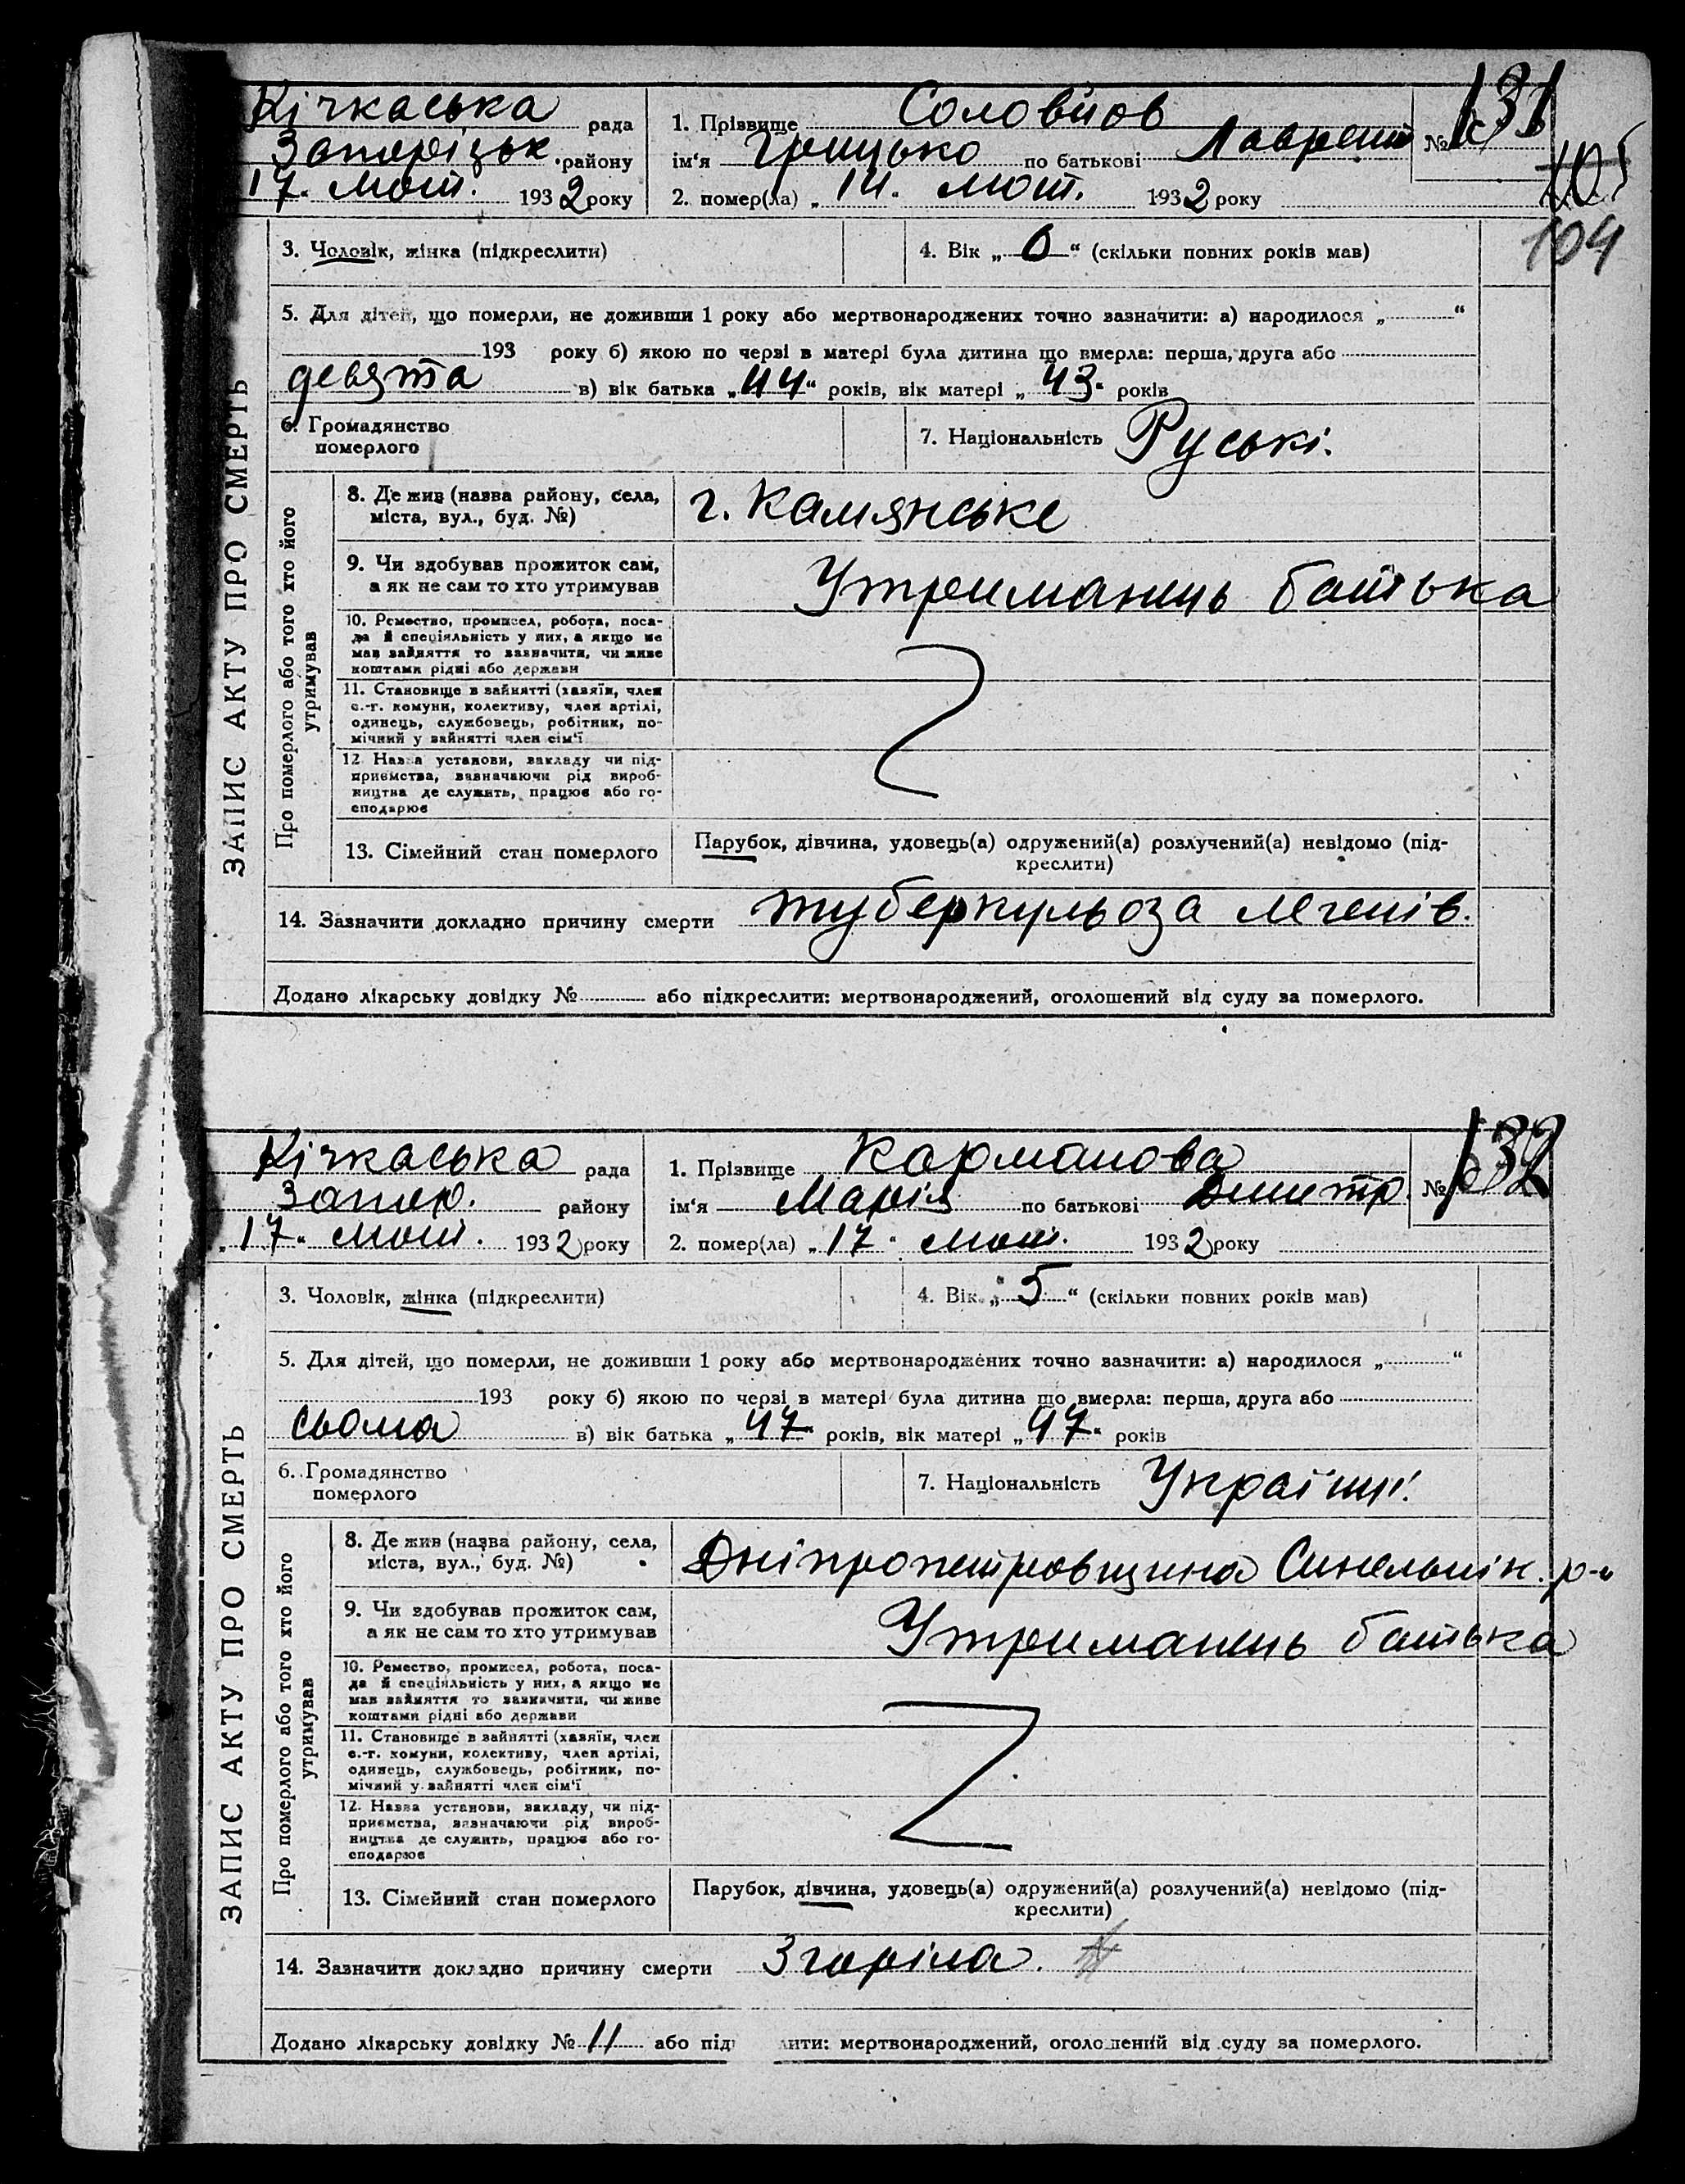 Кічкаська рада
Запоріцьк. району
17. лют. 1932 року
1. Прізвище Соловйов
ім'я Грицько по батькові Лаврент
2. помер(ла) „14. лют. 1932 року
№ 131
105
104
3. Чоловік, жінка (підкреслити)
4. Вік „0“ (скільки повних років мав)
5. Для дітей, що померли, не доживши 1 року або мертвонароджених точно зазначити: а) народилося „ “
193 року б) якою по черзі в матері була дитина що вмерла: перша, друга або
девята в) вік батька „44“ років, вік матері „43“ років
6. Громадянство
померлого
7. Національність Руські.
ЗАПИС АКТУ ПРО СМЕРТЬ
Про померлого або того хто його
утримував
8. Де жив (назва району, села,
міста, вул., буд. №)
г. Камянське
9. Чи здобував прожиток сам,
а як не сам то хто утримував
Утриманець батька
10. Ремество, промисел, робота, поса-
да й спеціяльність у них, а якщо не
мав зайняття то зазначити, чи живе
коштами рідні або держави
11. Становище в зайнятті (хазяїн, член
с.-г. комуни, колективу, член артілі,
одинець, службовець, робітник, по-
мічний у зайнятті член сім'ї
12. Назва установи, закладу чи під-
приємства, зазначаючи рід вироб-
ництва де служить, працює або го-
сподарює
13. Сімейний стан померлого
Парубок, дівчина, удовець(а) одружений(а) розлучений(а) невідомо (під-
креслити)
14. Зазначити докладно причину смерти туберкульоза легенів.
Додано лікарську довідку № або підкреслити: мертвонароджений, оголошений від суду за померлого.
Кічкаська рада
Запор. району
„17“ лют. 1932 року
1. Прізвище Карманова
ім'я Марія по батькові Дмитр.
2. помер(ла) „17“ лют. 1932 року
№ 132
3. Чоловік, жінка (підкреслити)
4. Вік „5“ (скільки повних років мав)
5. Для дітей, що померли, не доживши 1 року або мертвонароджених точно зазначити: а) народилося „ “
193 року б) якою по черзі в матері була дитина що вмерла: перша, друга або
сьома в) вік батька „47“ років, вік матері „47“ років
6. Громадянство
померлого
7. Національність Українці.
ЗАПИС АКТУ ПРО СМЕРТЬ
Про померлого або того хто його
утримував
8. Де жив (назва району, села,
міста, вул., буд. №)
Дніпропетровщина Синельнік. р-н
9. Чи здобував прожиток сам,
а як не сам то хто утримував
Утриманець батька
10. Ремество, промисел, робота, поса-
да й спеціяльність у них, а якщо не
мав зайняття то зазначити, чи живе
коштами рідні або держави
11. Становище в зайнятті (хазяїн, член
с.-г. комуни, колективу, член артілі,
одинець, службовець, робітник, по-
мічний у зайнятті член сім'ї
12. Назва установи, закладу, чи під-
приємства, зазначаючи рід вироб-
ництва де служить, працює або го-
сподарює
13. Сімейний стан померлого
Парубок, дівчина, удовець(а) одружений(а) розлучений(а) невідомо (під-
креслити)
14. Зазначити докладно причину смерти Згоріла.
Додано лікарську довідку № 11 або під ити: мертвонароджений, оголошений від суду за померлого.